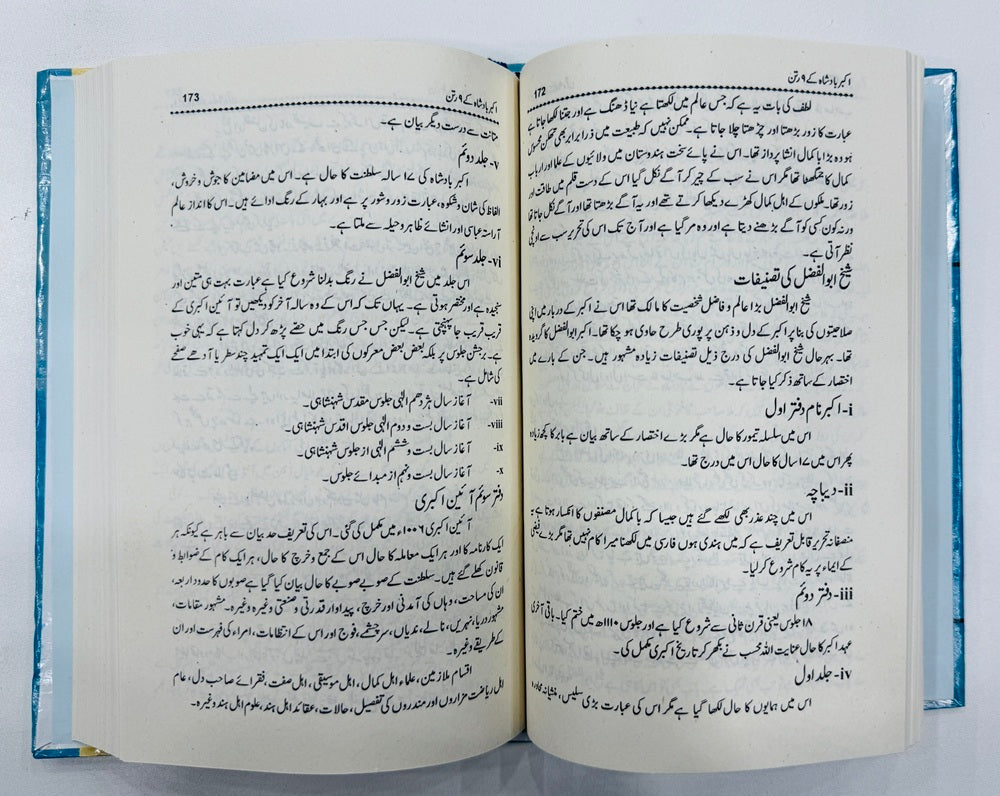 اکبر بادشاہ کے ۹ رتن
172
لطف کی بات یہ ہے کہ جس عالم میں لکھتا ہے نیا ڈھنگ ہے اور جتنا لکھا جاتا ہے
عبارت کا زور بڑھتا اور چڑھتا چلا جاتا ہے۔ ممکن نہیں کہ طبیعت میں ذرا برابر بھی تھکن محسوس
ہو وہ بڑا با کمال انشا پرداز تھا۔ اس نے پائے تخت ہندوستان میں ولائیوں کے علما اور ارباب
کمال کا جمگھٹا تھا مگر اس نے سب کے چیر کر آگے نکل گیا اس کے دست قلم میں طاقت اور
زور تھا۔ ملکوں کے اہل کمال کھڑے دیکھا کرتے تھے اور یہ آگے بڑھتا تھا اور آگے نکل جاتا تھا
ورنہ کون کسی کو آگے بڑھنے دیتا ہے اور وہ مر گیا ہے اور آج تک اس کی تحریر سب سے اونچی
نظر آتی ہے۔
شیخ ابوالفضل کی تصنیفات
شیخ ابوالفضل بڑا عالم و فاضل شخصیت کا مالک تھا اس نے اکبر کے دربار میں اپنی
صلاحیتوں کی بنا پر اکبر کے دل و ذہن پر پوری طرح حاوی ہو چکا تھا۔ اکبر ابوالفضل کا گرویدہ
تھا۔ بہرحال شیخ ابوالفضل کی درج ذیل تصنیفات زیادہ مشہور ہیں۔ جن کے بارے میں
اختصار کے ساتھ ذکر کیا جاتا ہے۔
i- اکبر نام دفتر اول
اس میں سلسلہ تیمور کا حال ہے مگر بڑے اختصار کے ساتھ بیان ہے بابر کا کچھ زیادہ
پھر اس میں ۱۷ سال کا حال اس میں درج تھا۔
ii- دیباچہ
اس میں چند عذر بھی لکھے گئے ہیں جیسا کہ با کمال مصنفوں کا انکسار ہوتا ہے یہ
منصفانہ تحریر قابل تعریف ہے کہ میں ہندی ہوں فارسی میں لکھنا میرا کام نہیں تھا مگر بڑے فیضی
کے ایماء پر یہ کام شروع کر لیا۔
iii- دفتر دوئم
۱۸ جلوس یعنی قرن ثانی سے شروع کیا ہے اور جلوس ۱۱۱۰ھ میں ختم کیا۔ باقی آخری
عہد اکبر کا حال عنایت اللہ محسب نے لکھ کر تاریخ اکبری مکمل کی۔
iv- جلد اول
اس میں ہمایوں کا حال لکھا گیا ہے مگر اس کی عبارت بڑی سلیس، منشیانہ محاورہ
اکبر بادشاہ کے ۹ رتن
173
متانت سے درست دیگر بیان ہے۔
v- جلد دوئم
اکبر بادشاہ کی ۱۷ سالہ سلطنت کا حال ہے۔ اس میں مضامین کا جوش و خروش،
الفاظ کی شان و شکوہ، عبارت زور و شور پر ہے اور بہار کے رنگ ادائے ہیں۔ اس کا انداز عالم
آراستہ عباسی اور انشائے طاہر وحیلہ سے ملتا ہے۔
vi- جلد سوئم
اس جلد میں شیخ ابوالفضل نے رنگ بدلنا شروع کیا ہے عبارت بہت ہی متین اور
سنجیدہ ہے اور مختصر ہوتی ہے۔ یہاں تک کہ اس کے دہ سالہ آخر کو دیکھیں تو آئین اکبری کے
قریب قریب جا پہنچتی ہے۔ لیکن جس جس رنگ میں حصے پڑھ کر دل کہتا ہے کہ یہی خوب
ہے۔ ہر جشن جلوس پر بلکہ بعض بعض معرکوں کی ابتدا میں ایک ایک تمہید چند سطر یا آدھے صفحے
کی شامل ہے۔
vii- آغاز سال ہژدھم الٰہی جلوس مقدس شہنشاہی۔
viii- آغاز سال بست و دوم الٰہی جلوس اقدس شہنشاہی۔
ix- آغاز سال بست و ششم الٰہی از جلوس شہنشاہی۔
x- آغاز سال بست و نہم از مبدائے جلوس۔
دفتر سوئم آئین اکبری
آئین اکبری ۱۰۰۶ء میں مکمل کی گئی۔ اس کی تعریف حد بیان سے باہر ہے کیونکہ ہر
ایک کارنامہ کا اور ہر ایک معاملہ کا حال اس کے جمع و خرچ کا حال، ہر ایک کام کے ضوابط و
قانون کھلے گئے ہیں۔ سلطنت کے صوبے صوبے کا حال بیان کیا گیا ہے صوبوں کا حدود اربعہ،
ان کی مساحت، وہاں کی آمدنی اور خرچ، پیداوار قدرتی و صنعتی وغیرہ وغیرہ۔ مشہور مقامات،
مشہور دریا، نہریں، نالے، ندیاں، سرچشمے، فوج اور اس کے انتظامات، امراء کی فہرست اور ان
کے طریقے وغیرہ۔
اقسام ملازمین، علماء، اہل کمال، اہل موسیقی، اہل صفت، فقرائے صاحب دل، عام
اہل ریاضت مزاروں اور مندروں کی تفصیل، حالات، عقائد اہل ہند، علوم اہل ہند وغیرہ۔